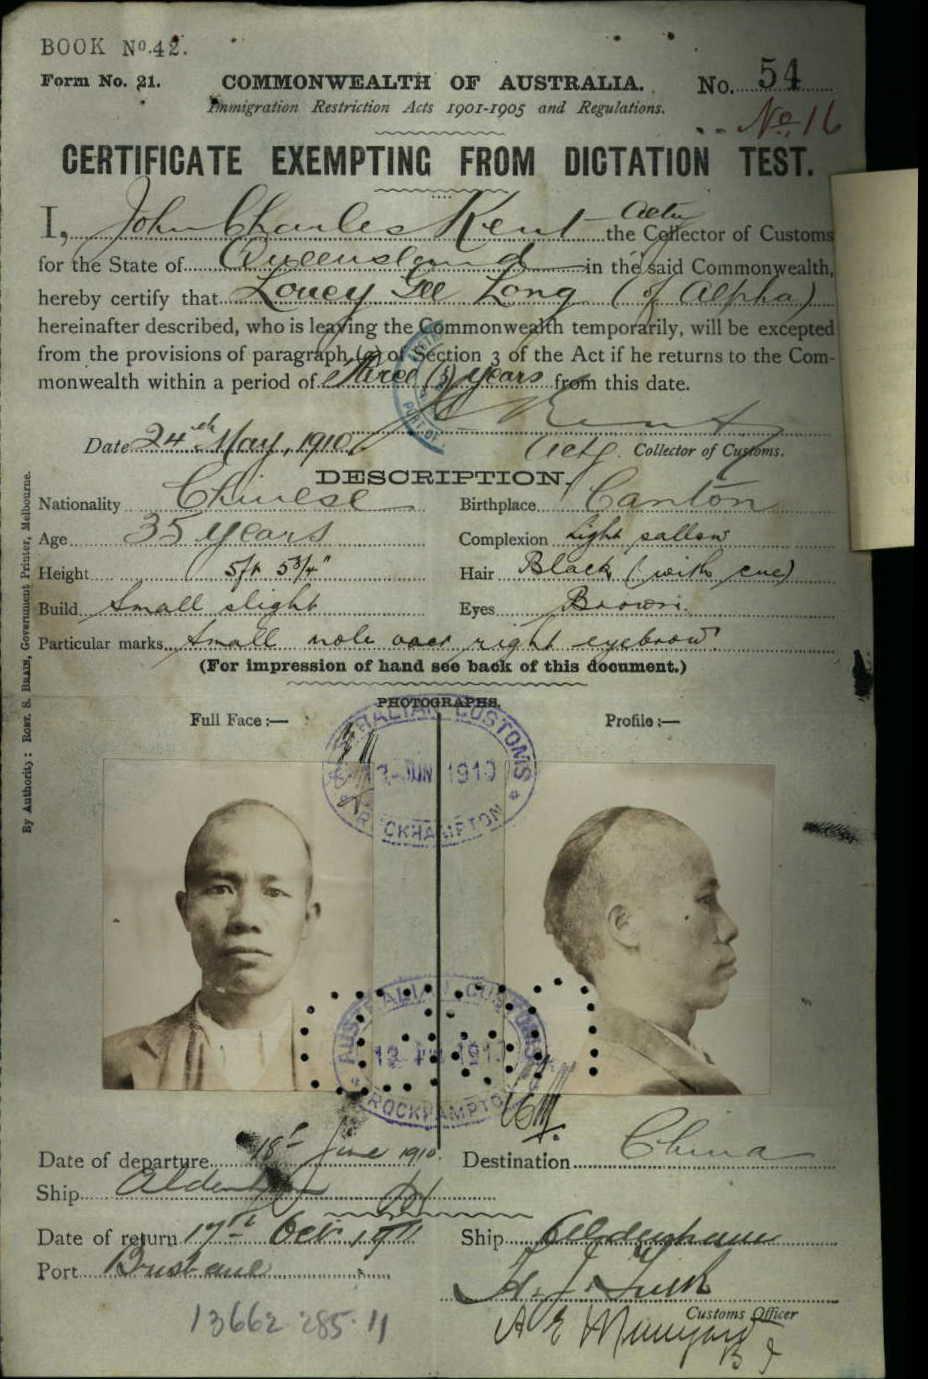 BOOK No. 42.
Form No. 21.
COMMONWEALTH OF AUSTRALIA.
No. 54
Immigration Restriction Acts 1901-1905 and Regulations.
No. 16
CERTIFICATE EXEMPTING FROM DICTATION TEST.
I, John Charles Kent Actg the Collector of Customs
for the State of Queensland in the said Commonwealth,
hereby certify that Louey Gee Long (of Alpha)
hereinafter described, who is leaving the Commonwealth temporarily, will be excepted
from the provisions of paragraph (a) of Section 3 of the Act if he returns to the Com-
monwealth within a period of three (3) years from this date.
Date 24th May, 1910
Actg. Collector of Customs.
DESCRIPTION.
Nationality Chinese
Birthplace Canton
Age 35 years
Complexion Light sallow
Height 5ft 5 3/4"
Hair Black (with cue)
Build Small slight
Eyes Brown.
Particular marks Small mole over right eyebrow
(For impression of hand see back of this document.)
By Authority: ROBT. S. BRAIN, Government Printer, Melbourne.
PHOTOGRAPHS.
Full Face:—
Profile:—
AUSTRALIAN CUSTOMS
13 JUN 1910
ROCKHAMPTON
AUSTRALIAN CUSTOMS
13 JUN 1910
ROCKHAMPTON
Date of departure 18th June 1910.
Destination China
Ship Aldenham
Date of return 17th Oct. 1911
Ship Aldenham
Port Brisbane
Customs Officer
13662.285.11